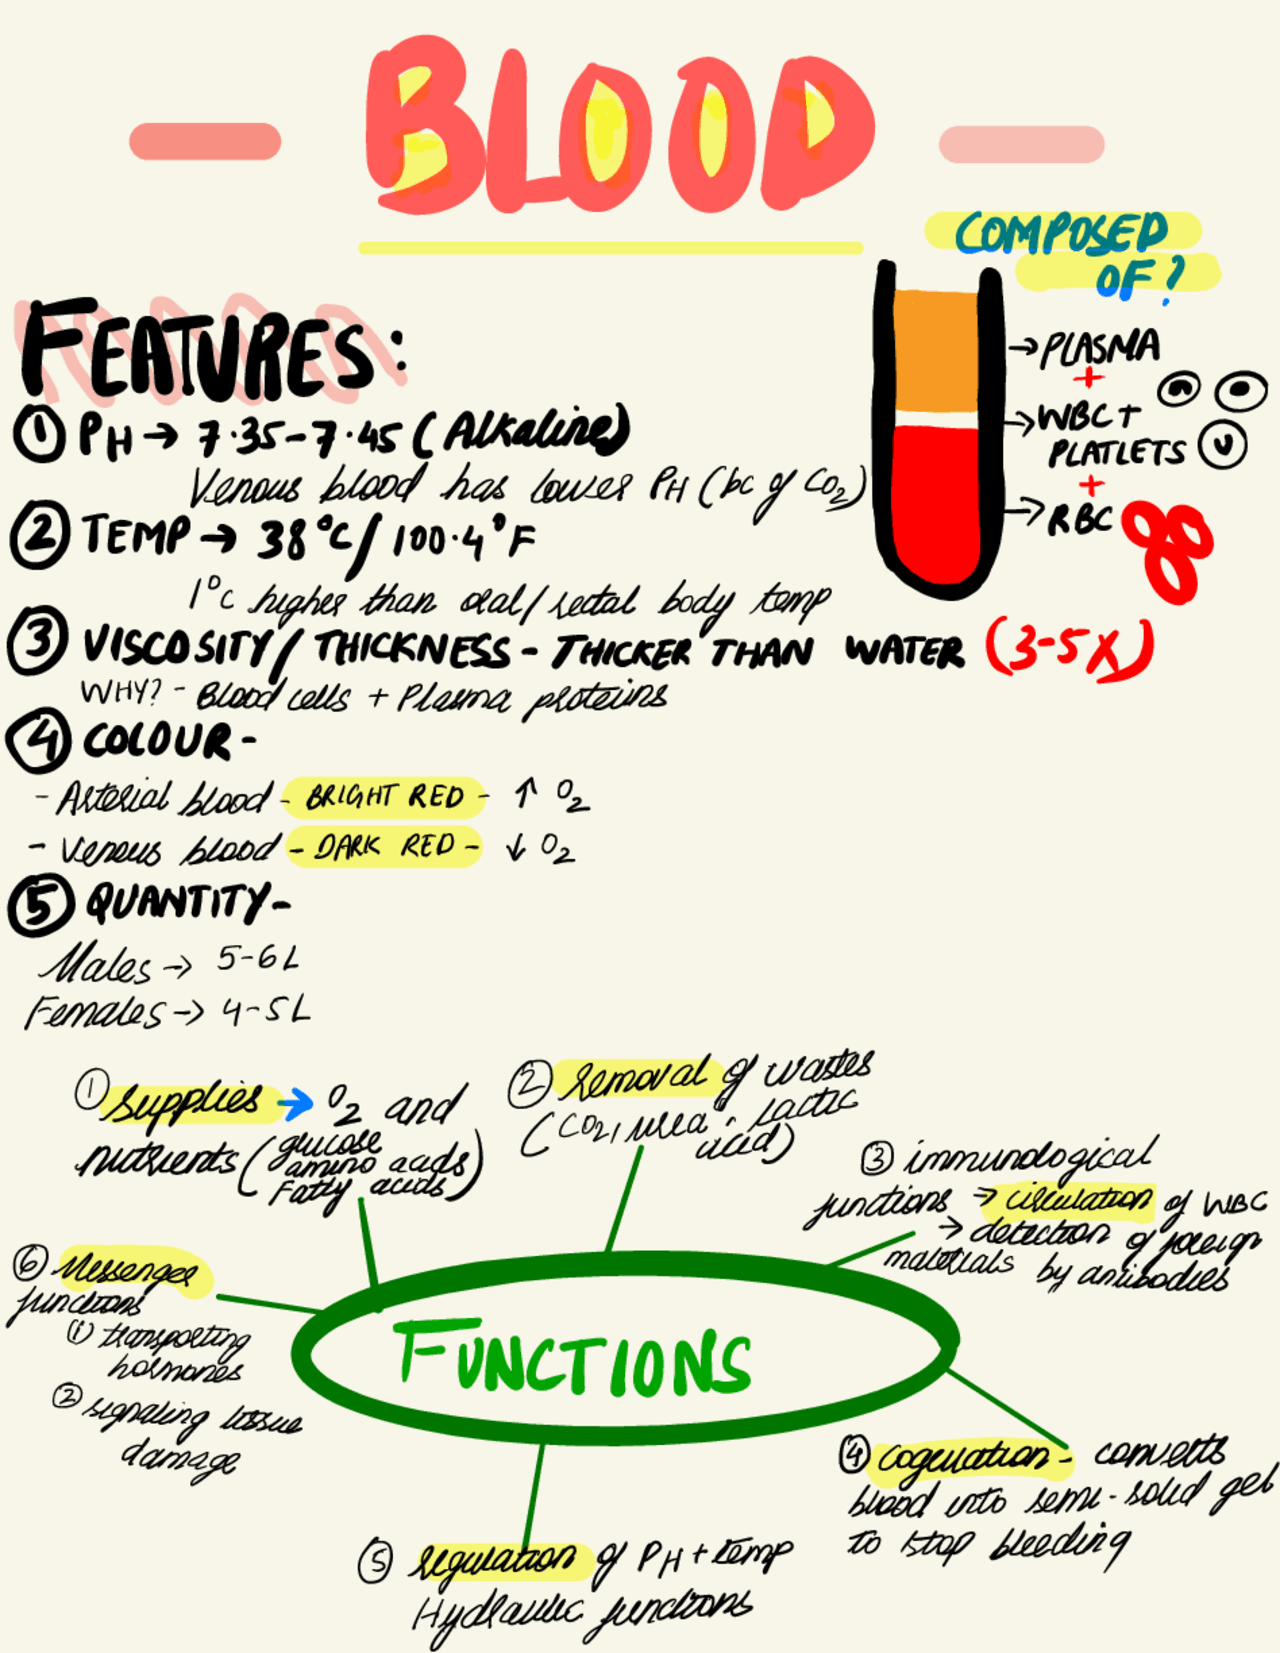 BLOOD
COMPOSED
OF?
→ PLASMA
+
→ WBC +
PLATLETS
+
→ RBC
FEATURES:
① PH → 7.35-7.45 (Alkaline)
Venous blood has lower PH (bc of CO₂)
② TEMP → 38°C/100.4°F
1°C higher than oral/rectal body temp
③ VISCOSITY/THICKNESS - THICKER THAN WATER (3-5X)
WHY? - Blood cells + Plasma proteins
④ COLOUR -
- Arterial blood - BRIGHT RED - ↑ O₂
- Venous blood - DARK RED - ↓ O₂
⑤ QUANTITY -
Males → 5-6L
Females → 4-5L
① supplies → O₂ and
nutrients (glucose
amino acids
Fatty acids)
② removal of wastes
(CO₂, urea, lactic
acid)
③ immunological
functions → circulation of WBC
→ detection of foreign
materials by antibodies
⑥ Messenger
functions
① transporting
hormones
② signaling tissue
damage
FUNCTIONS
④ Cogulation - converts
blood into semi-solid gel
to stop bleeding
⑤ regulation of PH + temp
Hydraulic functions